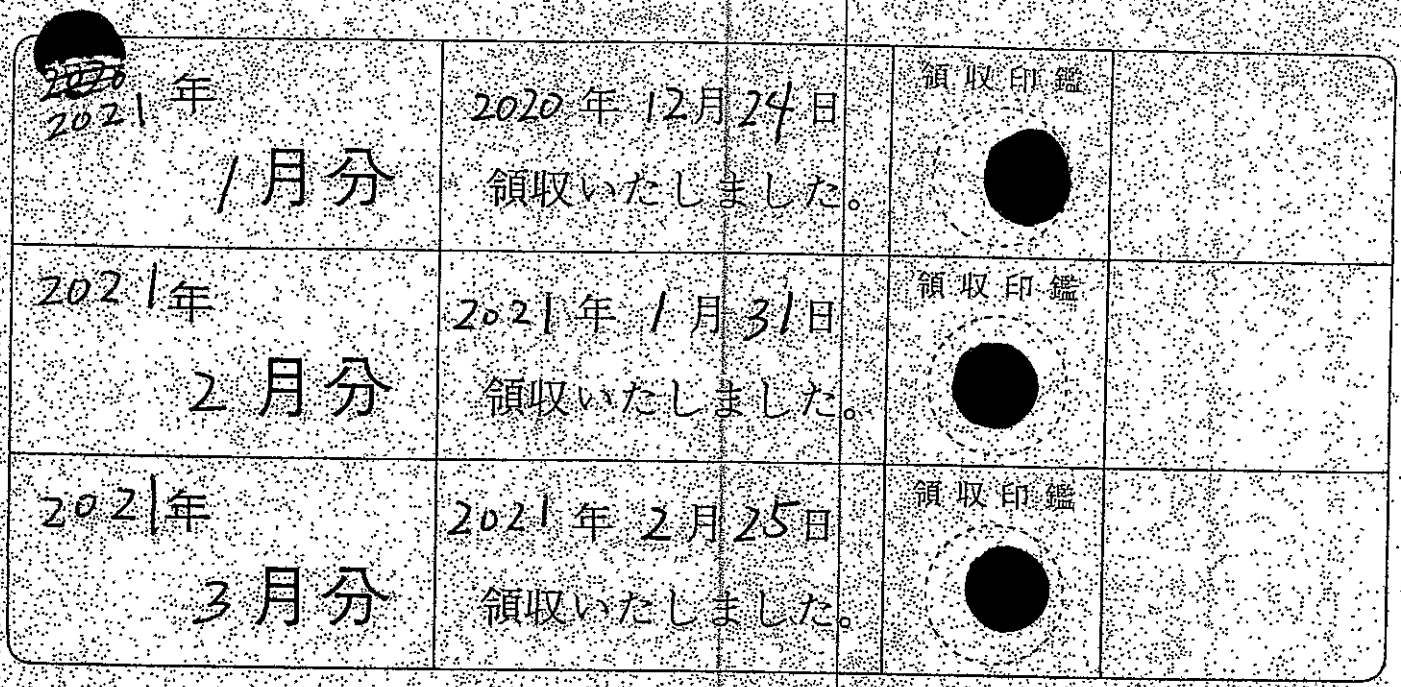 2020
2021年
1月分
2020年12月24日
領収いたしました。
領収印鑑
2021年
2月分
2021年1月31日
領収いたしました。
領収印鑑
2021年
3月分
2021年2月25日
領収いたしました。
領収印鑑